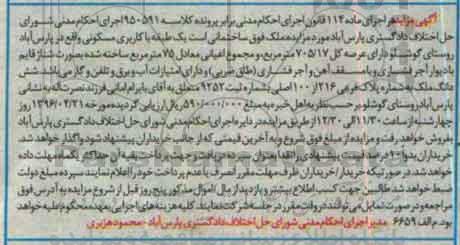 آگهی مزایده
در اجرای ماده ۱۱۴ قانون اجرای احکام مدنی برابر پرونده کلاسه ۹۵۰۵۹۱ اجرای احکام مدنی شورای
حل اختلاف دادگستری پارس آباد مورد مزایده ملک فوق ساختمانی است یک طبقه با کاربری مسکونی واقع در پارس آباد
روستای گوشلو دارای عرصه کل ۷۰۵/۱۷ متر مربع و مجموع اعیانی معادل ۷۵ متر مربع ساخته شده بصورت شناژ قایم
با دیوار آجر فشاری و با سقف آهن و آجر فشاری (طاق ضربی) و دارای امتیازات آب و برق و تلفن و گاز می باشد شش
دانگ ملک به شماره پلاک فرعی ۲۱۶ از ۱۰۰ اصلی بشماره ثبت ۹۲۵۲ متعلق به آقای بایرام امانی فرزند نصرت اله به نشانی
پارس آباد روستای گوشلو بر حسب نظریه اهل خبره به مبلغ ۵۹۰/۰۰۰/۰۰۰ ریال ارزیابی گردیده مورخه ۱۳۹۶/۰۲/۲۱ روز
چهارشنبه از ساعت ۱۱/۳۰ الی ۱۲/۳۰ از طریق مزایده در دایره اجرای احکام مدنی شورای حل اختلاف دادگستری پارس آباد
بفروش خواهد رفت و مزایده از مبلغ فوق شروع و به آخرین قیمتی که از جانب خریداران پیشنهاد شود واگذار خواهد شد.
خریداران بدوا ۱۰ درصد قیمت پیشنهادی را نقدا بعنوان سپرده دریافت و جهت پرداخت بقیه آن حداکثر یکماه مهلت داده
خواهد شد. در صورتیکه خریدار/خریداران ظرف مهلت مقرر انصراف یا عدم پرداخت خود را اعلام نمایند سپرده مبلغ دولت
ضبط خواهد شد طالبین جهت کسب اطلاع بیشتر و بازدید از مال/اموال مذکور پنج روز قبل از شروع مزایده به آدرس فوق
مراجعه و در صورت تمایل می توانند در وقت مقرر در جلسه شرکت نمایند. کلیه هزینه های اجرایی بعهده محکوم علیه خواهد
بود. م الف ۶۶۵۹ مدیر اجرای احکام مدنی شورای حل اختلاف دادگستری پارس آباد - محمود هژبری